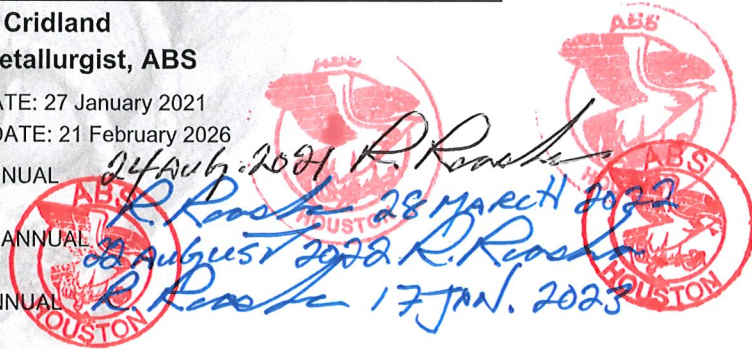 Cridland
etallurgist, ABS
ATE: 27 January 2021
DATE: 21 February 2026
NUAL 24 Aug. 2021 R.
R. 28 MARCH 2022
ANNUAL 22 August 2022 R.
NNUAL R. 17 JAN. 2023
ABS
HOUSTON
ABS
HOUSTON
ABS
HOUSTON
ABS